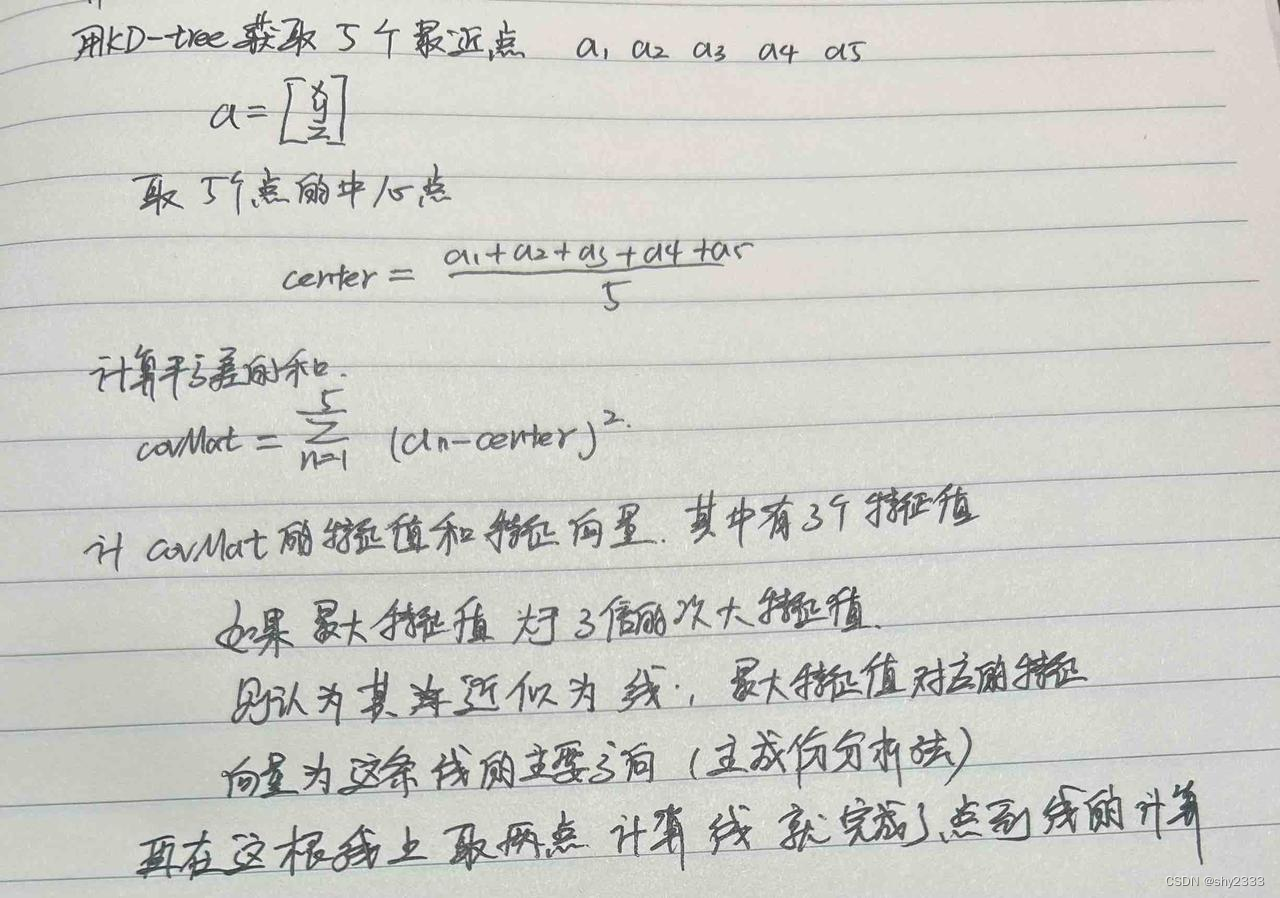 用KD-tree获取5个最近点 a1 a2 a3 a4 a5
a = [x y z]
取5个点的中心点
center = (a1+a2+a3+a4+a5) / 5
计算平方差的和.
covMat = Σ_{n=1}^{5} (an-center)².
计 covMat 的特征值和特征向量. 其中有3个特征值
如果最大特征值大于3倍的次大特征值.
则认为其近似为线., 最大特征值对应的特征
向量为这条线的主要方向 (主成份分析法)
再在这根线上取两点 计算线 就完成了点到线的计算
CSDN @shy2333